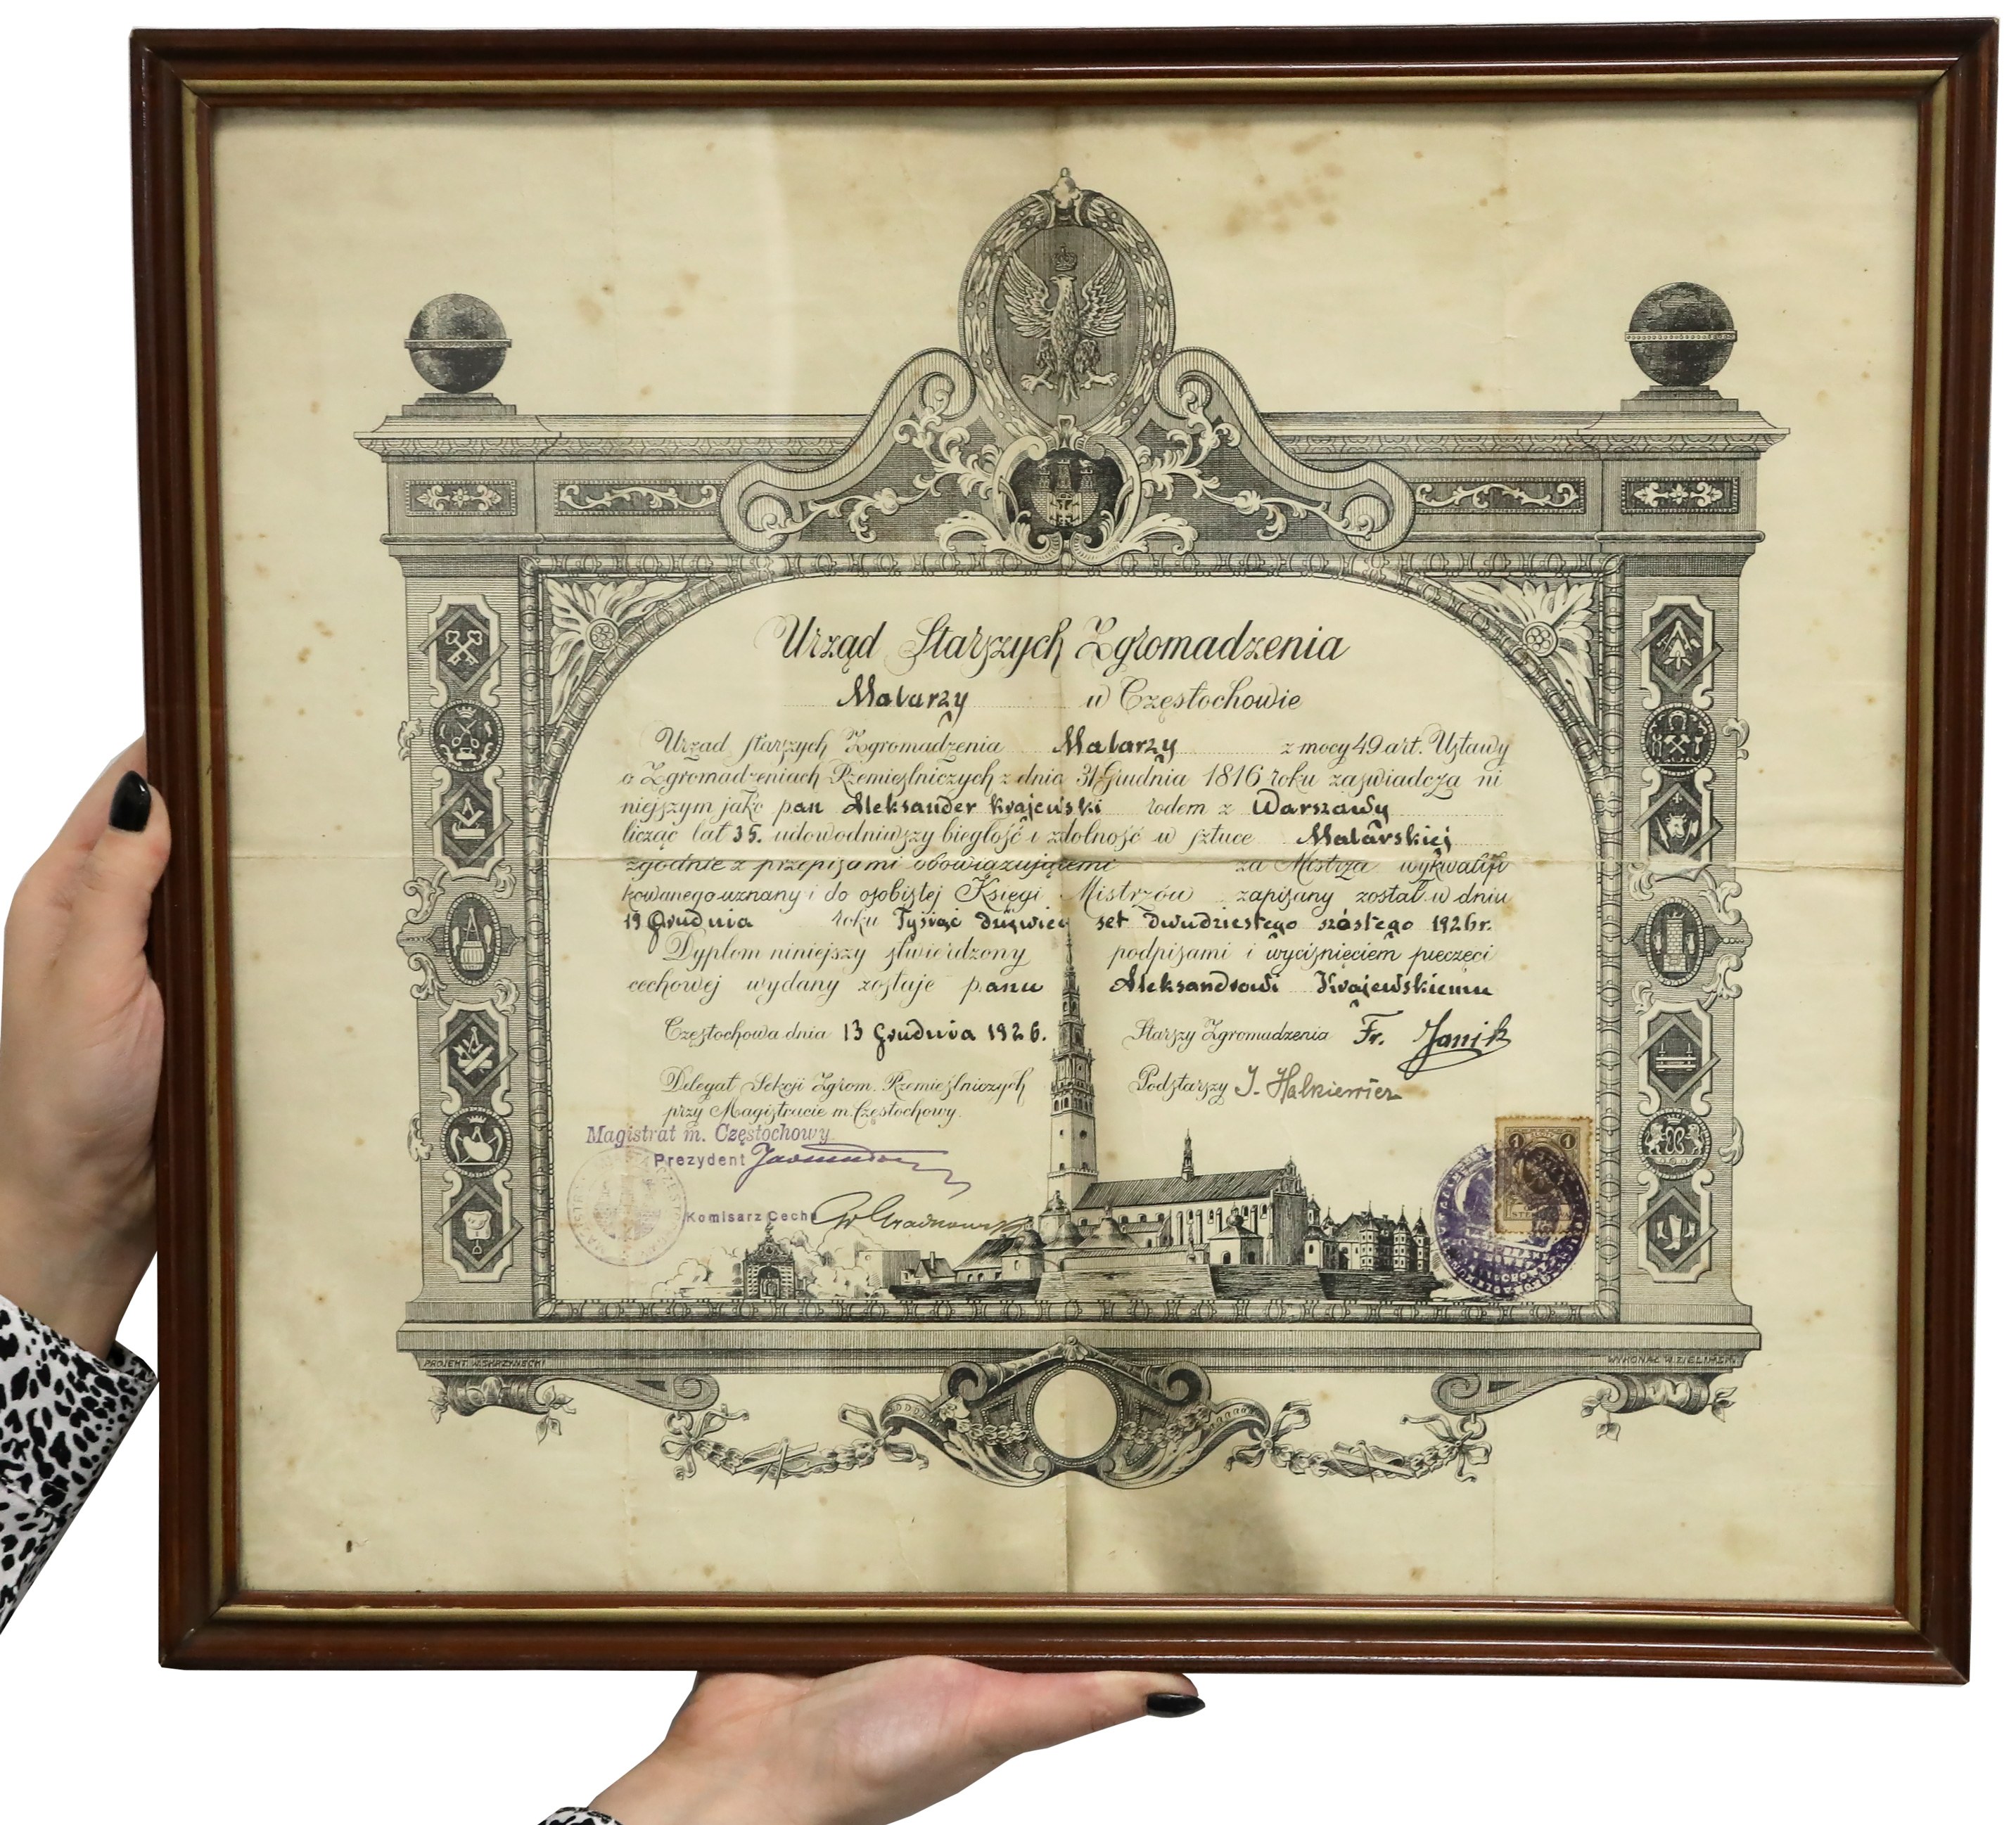 Urząd Starszych Zgromadzenia
Malarzy w Częstochowie
Urząd starszych Zgromadzenia Malarzy z mocy 49 art. Ustawy
o Zgromadzeniach Rzemieślniczych z dnia 31 Grudnia 1816 roku zaświadcza ni
niejszym jako pan Aleksander Krajewski rodem z Warszawy
licząc lat 35. udowodniwszy biegłość i zdolność w sztuce Malarskiej
zgodnie z przepisami obowiązującemi za Mistrza wykwalifi
kowanego uznany i do osobistej Księgi Mistrzów zapisany został w dniu
13 Grudnia roku Tysiąc dziewięć set dwudziestego szóstego 1926r.
Dyplom niniejszy stwierdzony podpisami i wyciśnięciem pieczęci
cechowej wydany zostaje panu Aleksandrowi Krajewskiemu
Częstochowa dnia 13 Grudnia 1926. Starszy Zgromadzenia Fr. Janik
Delegat Sekcji Zgrom. Rzemieślniczych Podstarszy J. Halkiewicz
przy Magistracie m. Częstochowy.
Magistrat m. Częstochowy
Prezydent
Komisarz Cechu
1 1
PROJEKT. W. SKRZYNECKI WYKONAŁ W. ZIELIŃSKI